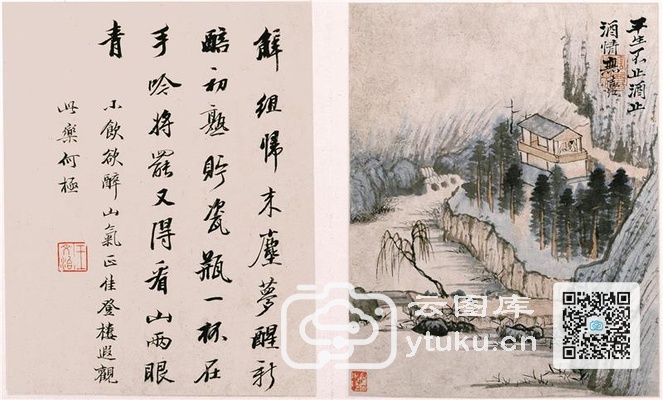 平生不止酒止
酒情無喜
解組歸來塵夢醒新
醅初熟貯瓷瓶一杯在
手吟將罷又得看山兩眼
青
小飲欲醉山氣正佳登樓遐觀
此樂何極
王文治
云图库
ytuku.cn